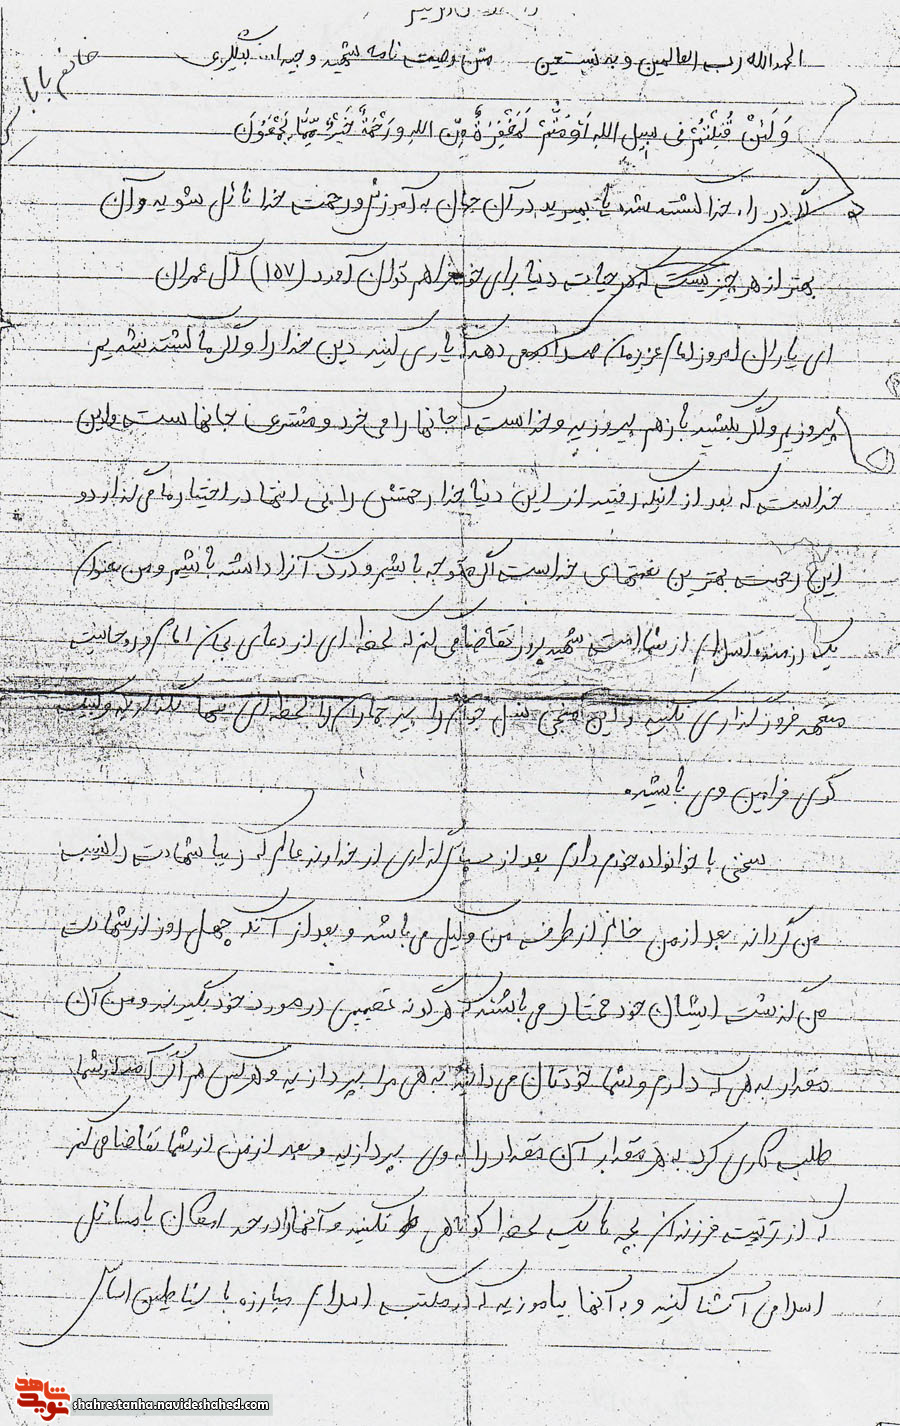 الحمدالله رب العالمین و به نستعین متن وصیت نامه شهید
خانم بابا
وَ لَئِنْ قُتِلْتُمْ فی سبیل اللهِ اَوْمُتُّمْ لَمَغْفِرَةٌ مِّنَ اللهِ و رَحْمَةٌ خَیْرٌ مِّمّا یَجْمَعُونَ
اگر در راه خدا کشته شده یا بمیرید در آن جهان به آمرزش و رحمت خدا نائل شوید و آن
بهتر از هر چیزیست که در حیات دنیا برای خود فراهم توان آورد (۱۵۷) آل عمران
ای یاران امروز امام عزیزمان صدا می دهد که یاری کنید دین خدا را و اگر ما کشته شدیم
پیروزیم و اگر بکشید باز هم پیروزید و خداست که جانها را می خرد و مشتری جانهاست و این
خداست که بعد از اینکه رفتید از این دنیا خدا رحمتش را بی انتها در اختیار ما می گذارد و
این رحمت بهترین نعمتهای خداست اگر متوجه باشیم و درک آنرا داشته باشیم و من بعنوان
یک رزمنده اسلام از شما امت شهید پرور تقاضا می کنم که لحظه ای از دعای بجان امام و روحانیت
متعهد فروگذاری نکنید و این منجی نسل جوان را پیر جماران را لحظه ای تنها نگذارید و لبیک
گوی فرامین وی باشید.
سخنی با خوانواده خودم دارم بعد از سپاس گذاری از خداوند عالم که زیبا شهادت را نصیب
من گرداند بعد از من خانم از طرف من وکیل می باشد و بعد از آنکه چهل روز از شهادت
من گذشت ایشان خود مختار می باشند که هر گونه تصمیمی در مورد خود بگیرند و من آن
مقدار بدهی که دارم و شما خودتان می دانید بدهی مرا بپردازید و هر کس هم اگر آمد از شما
طلب کاری کرد به هر مقدار آن مقدار را به وی بپردازید و بعد از من از شما تقاضا می کنم
که از تربیت فرزندان بچه ها یک لحظه کوتاهی نکنید و آنها را در حد امکان با مسائل
اسلامی آشنا کنید و به آنها بیاموزید که در مکتب اسلام مبارزه با شیاطین اساس
شاهد
نوید
shahrestanha.navideshahed.com